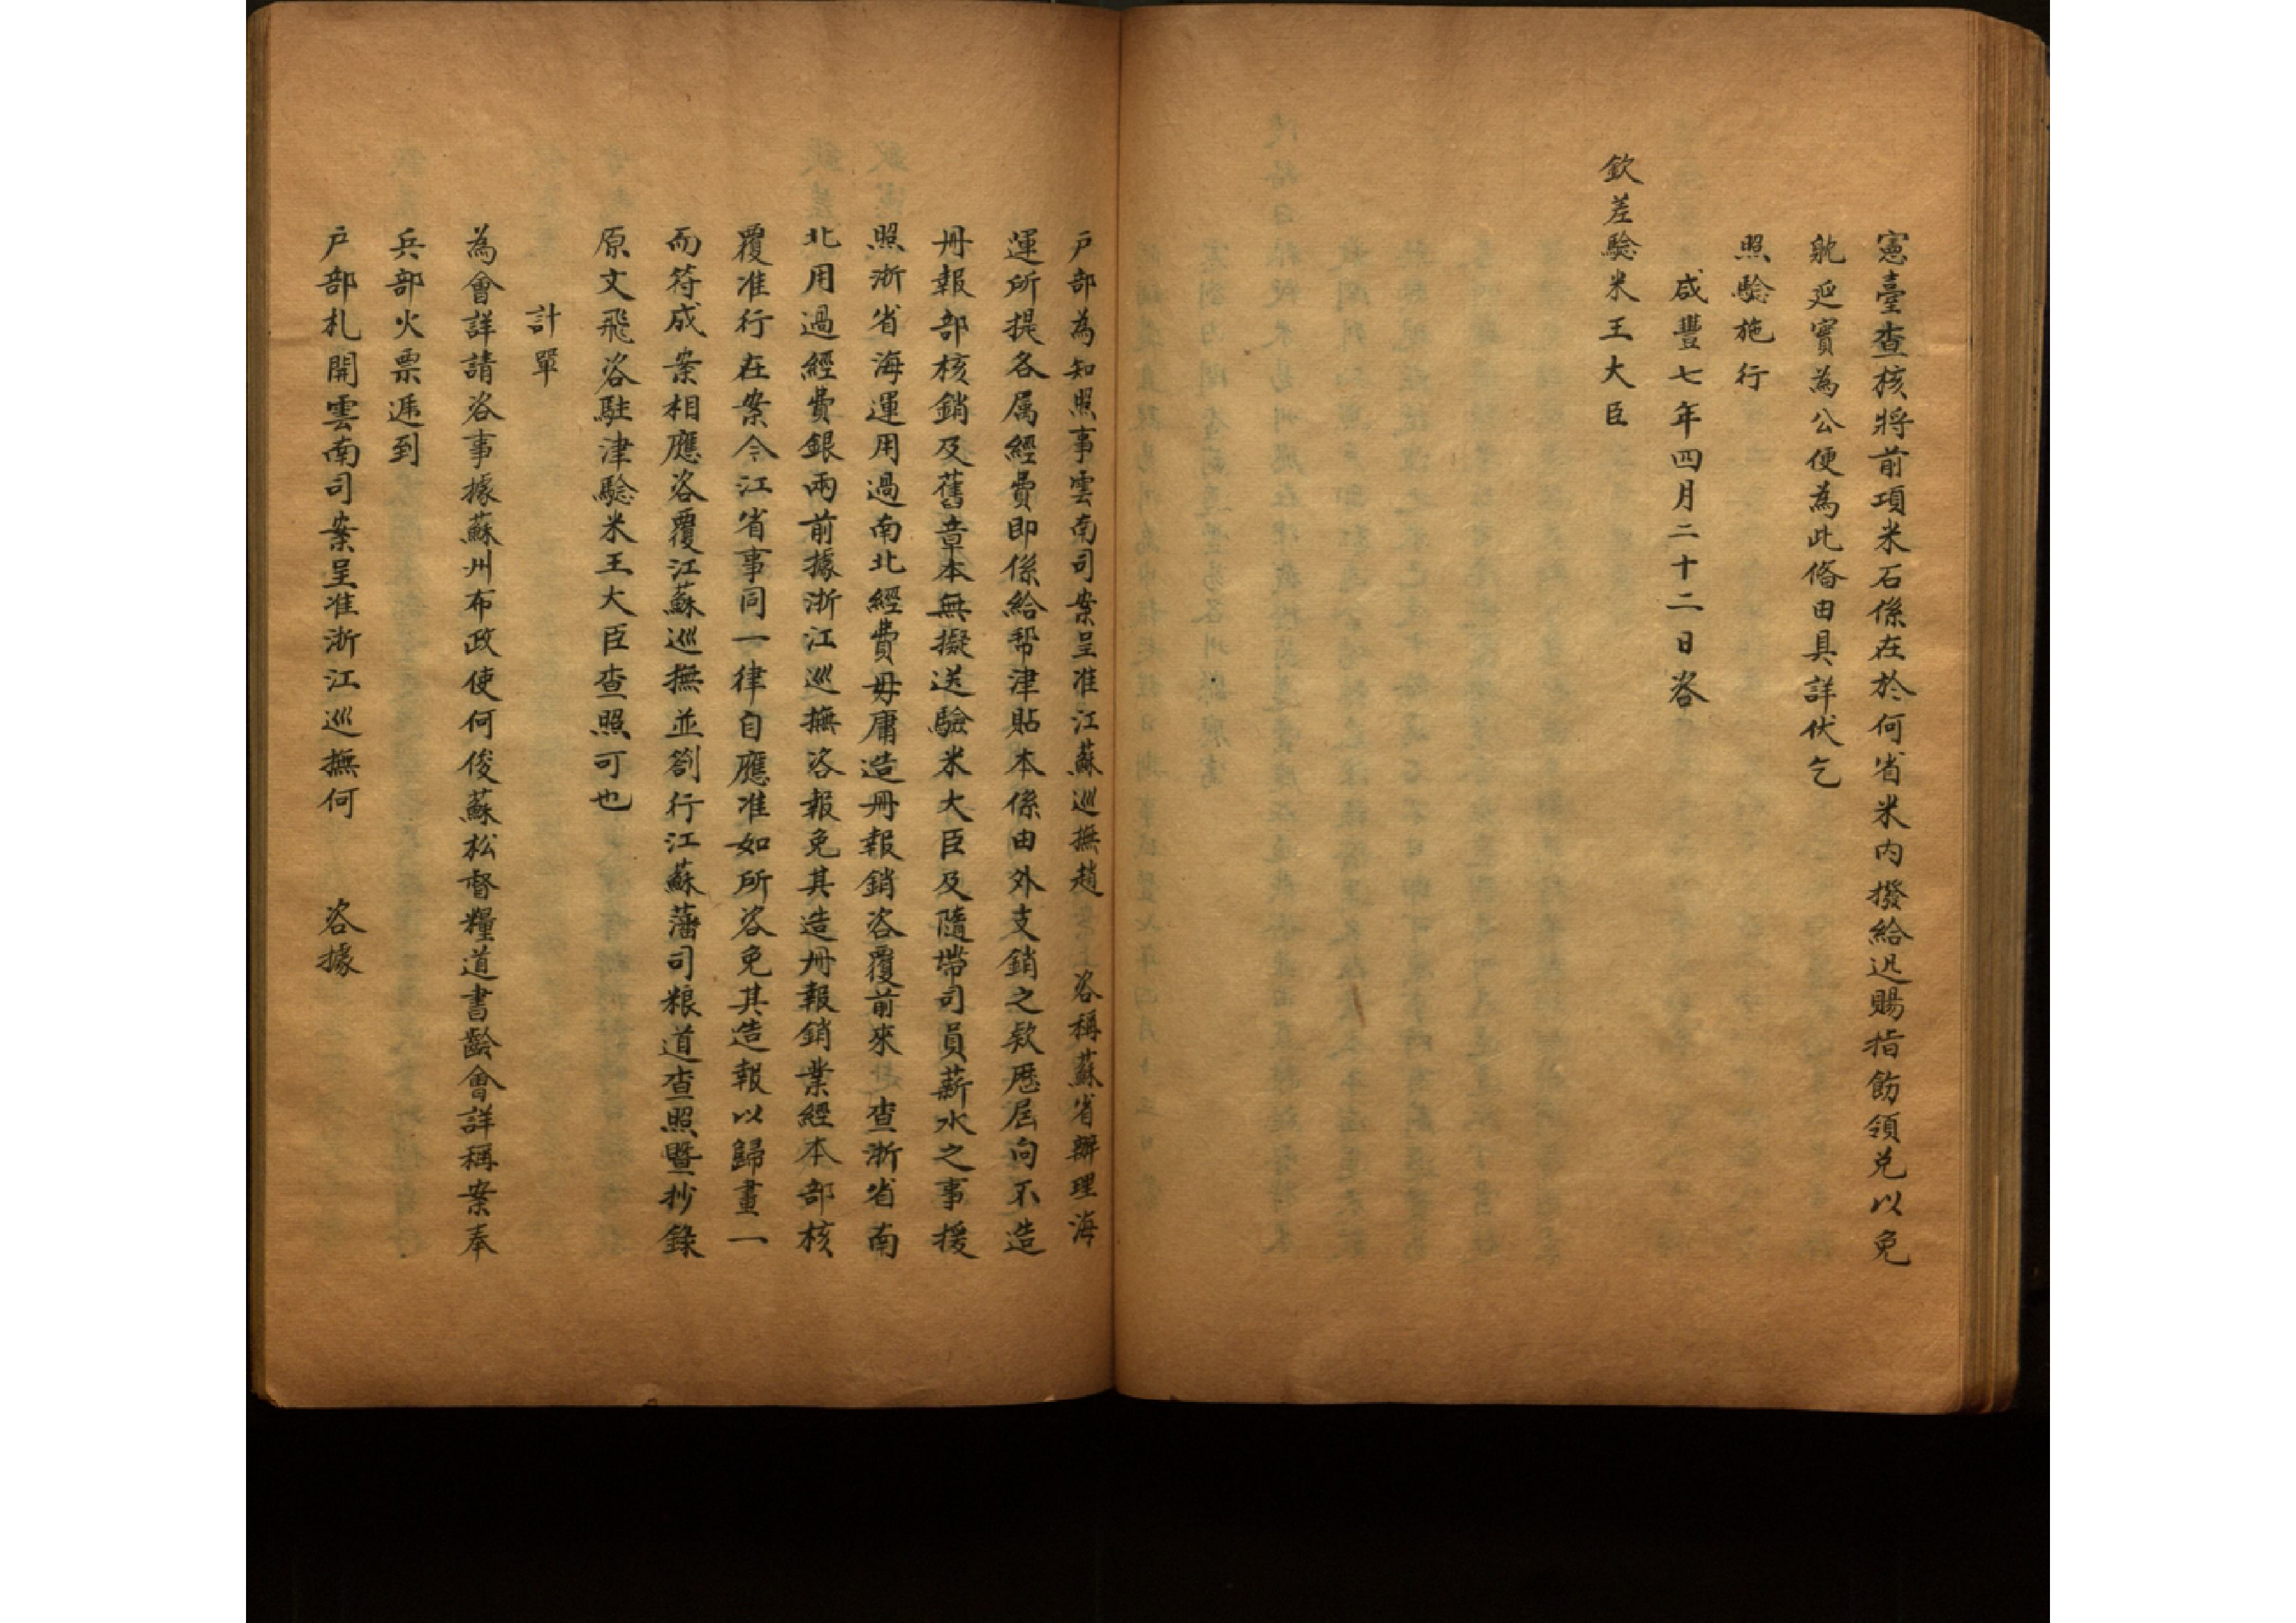 憲臺查核將前項米石係在於何省米內撥給迅賜指飭領兌以免
躭延實為公便為此備由具詳伏乞
照驗施行
咸豐七年四月二十二日咨
欽差驗米王大臣
戶部為知照事雲南司案呈准江蘇巡撫趙 咨稱蘇省辦理海
運所提各属經費即係給幫津貼本係由外支銷之欵歷屆向不造
冊報部核銷及舊章本無擬送驗米大臣及隨帶司員薪水之事援
照浙省海運用過南北經費毋庸造冊報銷咨覆前來 查浙省南
北用過經費銀兩前據浙江巡撫咨報免其造冊報銷業經本部核
覆准行在案今江省事同一律自應准如所咨免其造報以歸畫一
而符成案相應咨覆江蘇巡撫並劄行江蘇藩司粮道查照暨抄錄
原文飛咨駐津驗米王大臣查照可也
計單
為會詳請咨事據蘇州布政使何俊蘇松督糧道書齡會詳稱案奉
兵部火票遞到
戶部札開雲南司案呈准浙江巡撫何 咨據